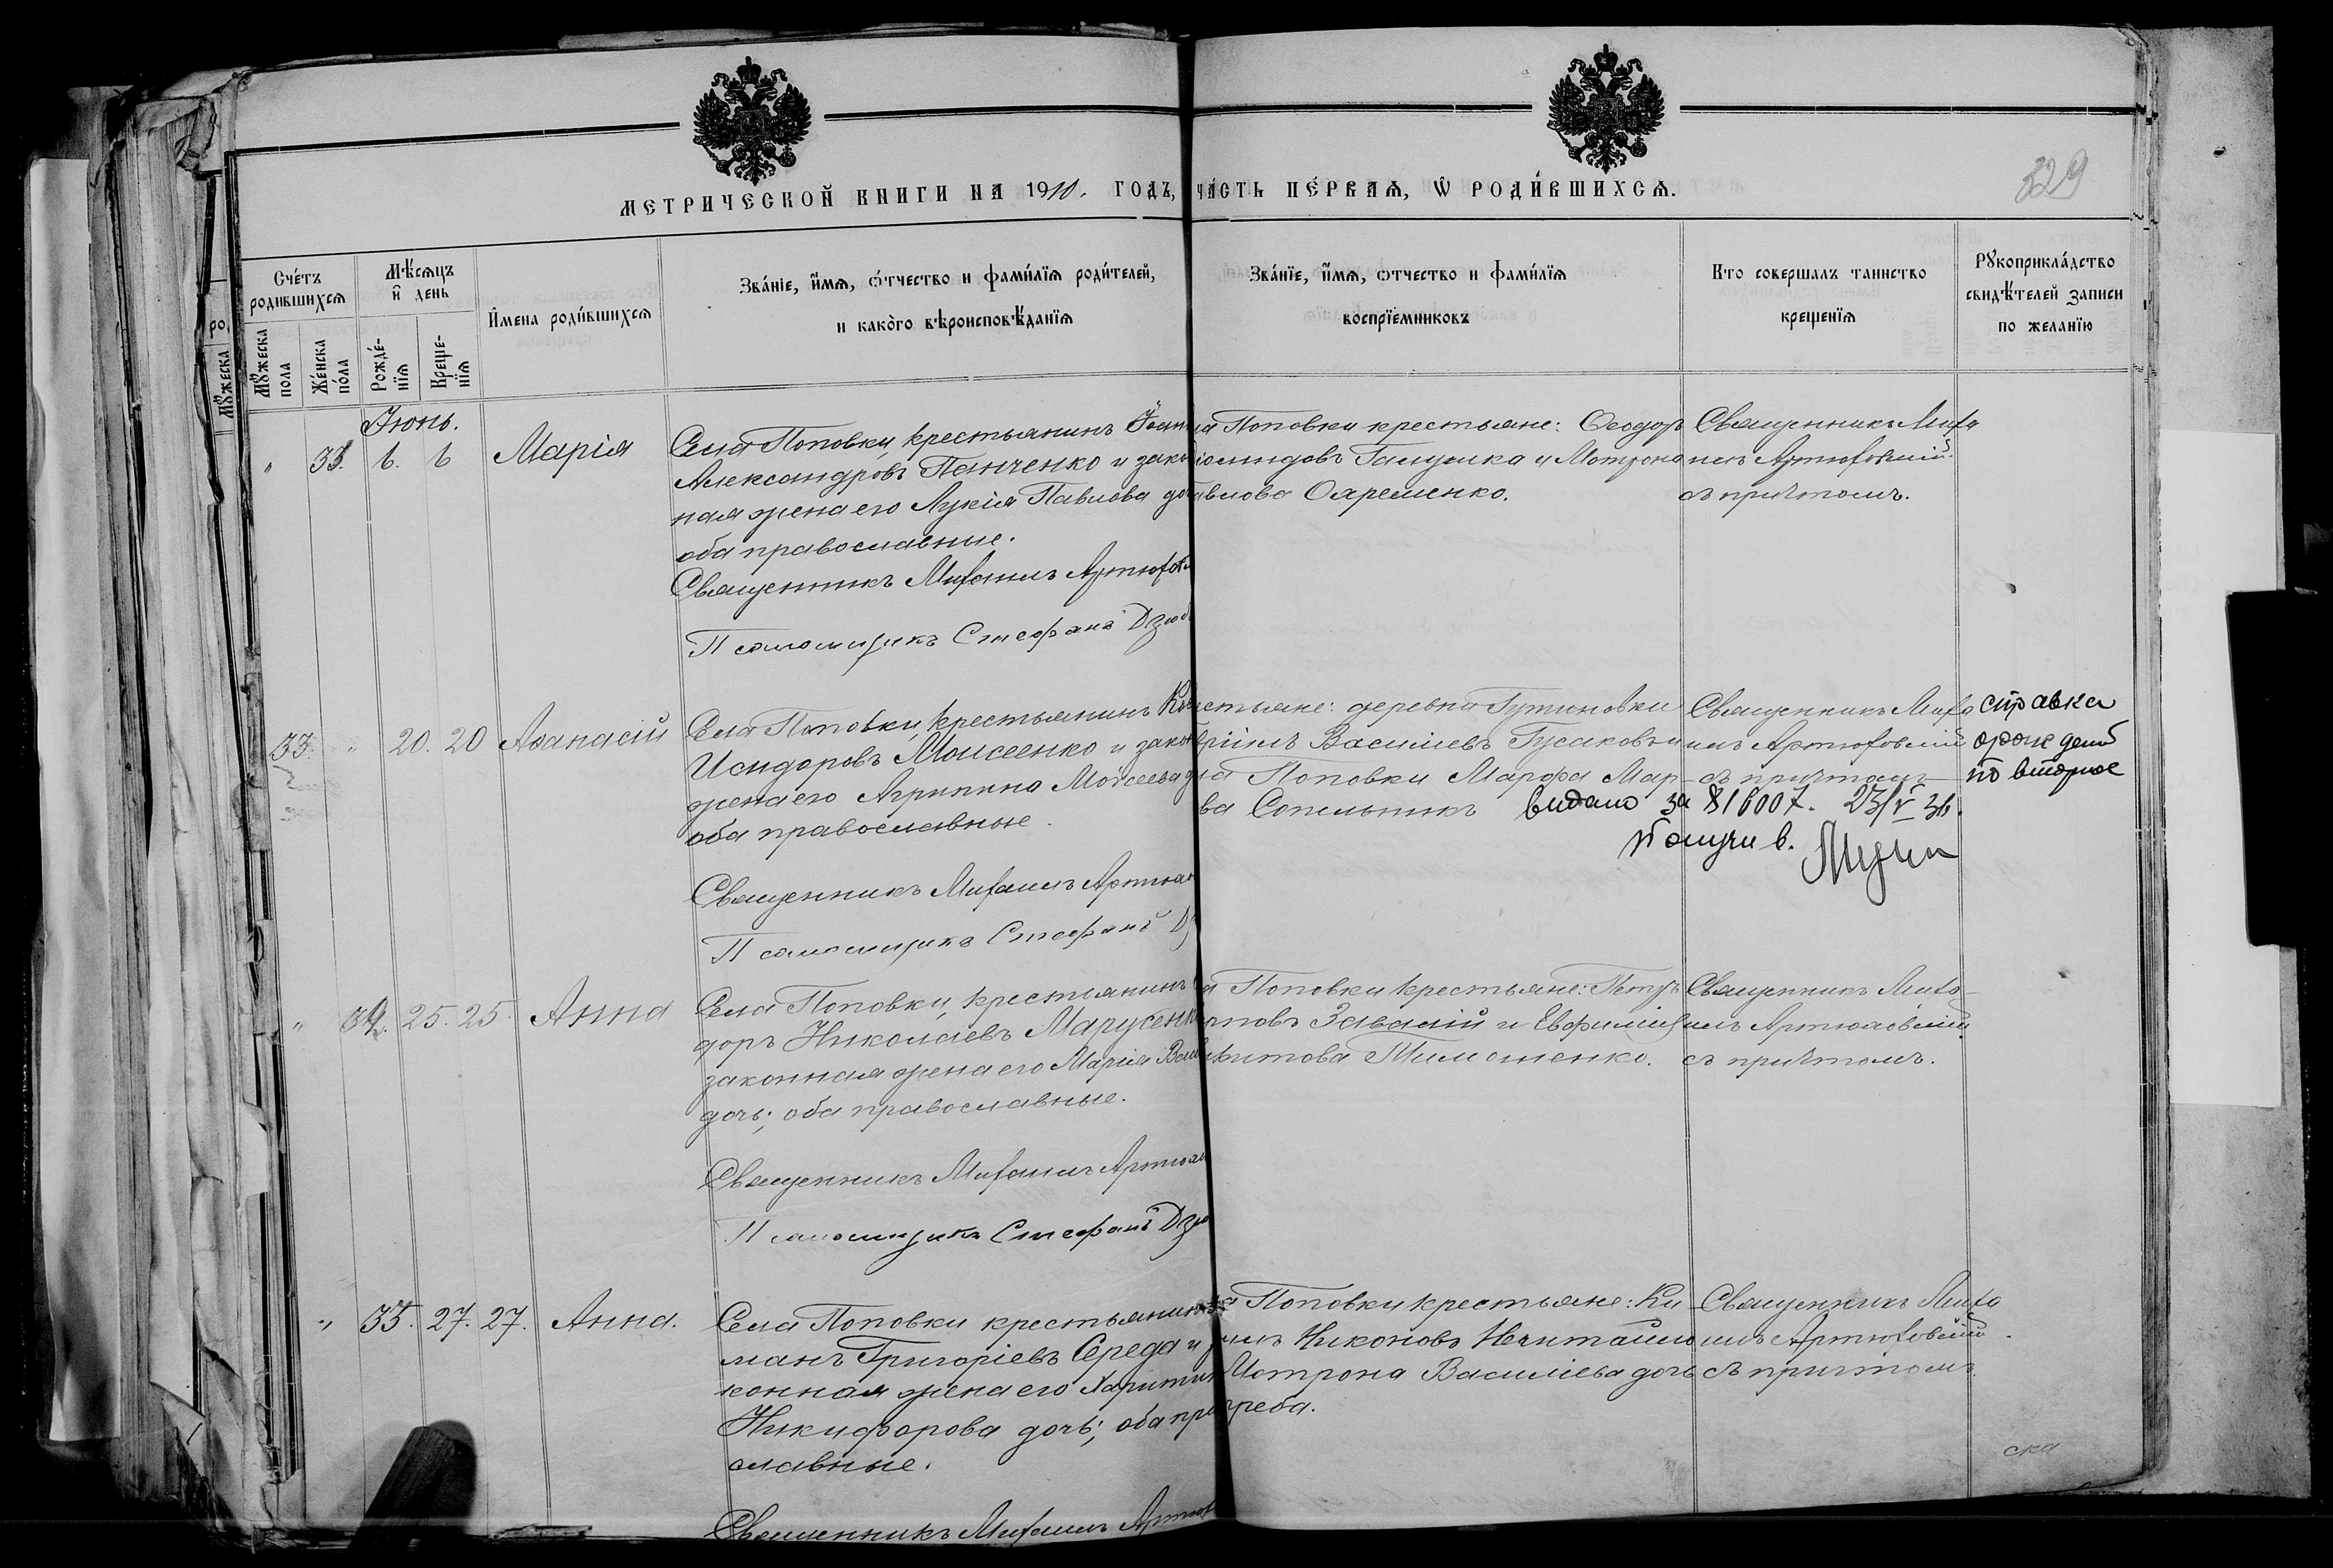 329
МЕТРИЧЕСКОЙ КНИГИ НА 1910. ГОДЪ, ЧА́СТЬ ПЕ́РВАѦ, Ѡ РОДИ́ВШИХСѦ.
Сче́тъ родившихсѧ
Мѣ́сѧцъ и̂ день
И̂мена роди́вшихсѧ
Зва́нїе, и́мѧ, ѻ́тчество и фами́лїѧ роди́телей, и како̀го вѣроисповѣ́данїѧ
Зва́нїе, и́мѧ, ѻтчество и фами́лїѧ воспрїе́мниковъ
Кто совершалъ таинство крещенїѧ
Рꙋкоприкла́дство свидѣ́телей записи по желанїю
Мꙋ́жеска пола
Же́нска по́ла
Рожде́-нїѧ
Креще-нїѧ
Іюнь.
" 33. 6. 6 Марія
Села Поповки, крестьянинъ Іоан
Александровъ Панченко и зако
ная жена его Лукія Павлова до
оба православные.
Священникъ Михаилъ Артюхов
Псаломщикъ Стефанъ Дзюб
а Поповки крестьяне: Ѳеодоръ
мидовъ Галушка и Мотрона
авлова Охременко.
Священникъ Миха
илъ Артюховскій
съ причтомъ.
33. " 20. 20 Аѳанасій
Села Поповки, крестьянинъ
Исидоровъ Моисеенко и закон
жена его Агрипина Моѵсеева д
оба православные.
Священникъ Михаилъ Артюх
Псаломщикъ Стефанъ Д
естьяне: деревни Гутиновки
Василіевъ Гусаковъ и
ла Поповки Марѳа Мар-
ва Сопельникъ видано за 816007. 23/V 36.
Получив.
Священникъ Миха
илъ Артюховскій
съ причтомъ
справка
орождені
по вторное
" 34. 25. 25. Анна
Села Поповки, крестьянинъ
доръ Николаевъ Марусенк
законная жена его Марія Васи
дочь; оба православные.
Священникъ Михаилъ Артюх
Псаломщикъ Стефанъ Дзю
а Поповки крестьяне: Петръ
повъ Завалій и Евфимія
китова Тимошенко.
Священникъ Миха-
илъ Артюховскій
съ причтомъ.
" 35. 27. 27. Анна.
Села Поповки крестьянинъ
манъ Григоріевъ Середа и
конная жена его Харитин
Никифорова дочь; оба пра
славные.
Священникъ Михаилъ Артюх
а Поповки крестьяне: Ки-
илъ Никоновъ Нечитайло
Мотрона Василіева дочь
греба.
Священникъ Миха
илъ Артюховскій
съ причтомъ.
ска